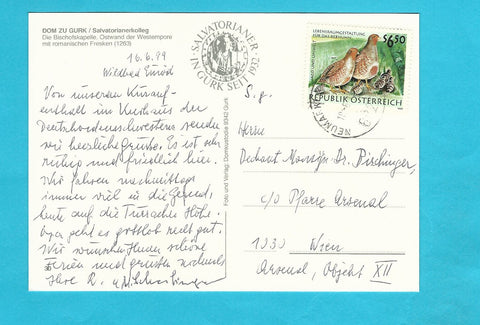 DOM ZU GURK / Salvatorianerkolleg
Die Bischofskapelle, Ostwand der Westempore
mit romanischen Fresken (1263)
16.6.99
Wildbad Einöd
Von unserem Kurauf-
enthalt im Kurhaus der
Deutschordensschwestern senden
wir herzliche Grüsse. Es ist sehr
ruhig und friedlich hier.
Wir fahren nachmittags
immer viel in die Gegend,
heute auf die Turracher Höhe.
geht es gottlob recht gut.
Wir wünschen Ihnen schöne
Ferien und grüssen nochmals
Ihre R. u.
Foto und Verlag: Dombuchhandlung 9342 Gurk
SALVATORIANER
IN GURK SEIT 1932
LEBENSRAUMGESTALTUNG
S 6,50
REPUBLIK ÖSTERREICH
NEUMARKT
S. g.
Herrn
Dechant Monsign. Dr. Pirchinger,
c/o Pfarre Arsenal
1030 Wien
Arsenal, Objekt XII